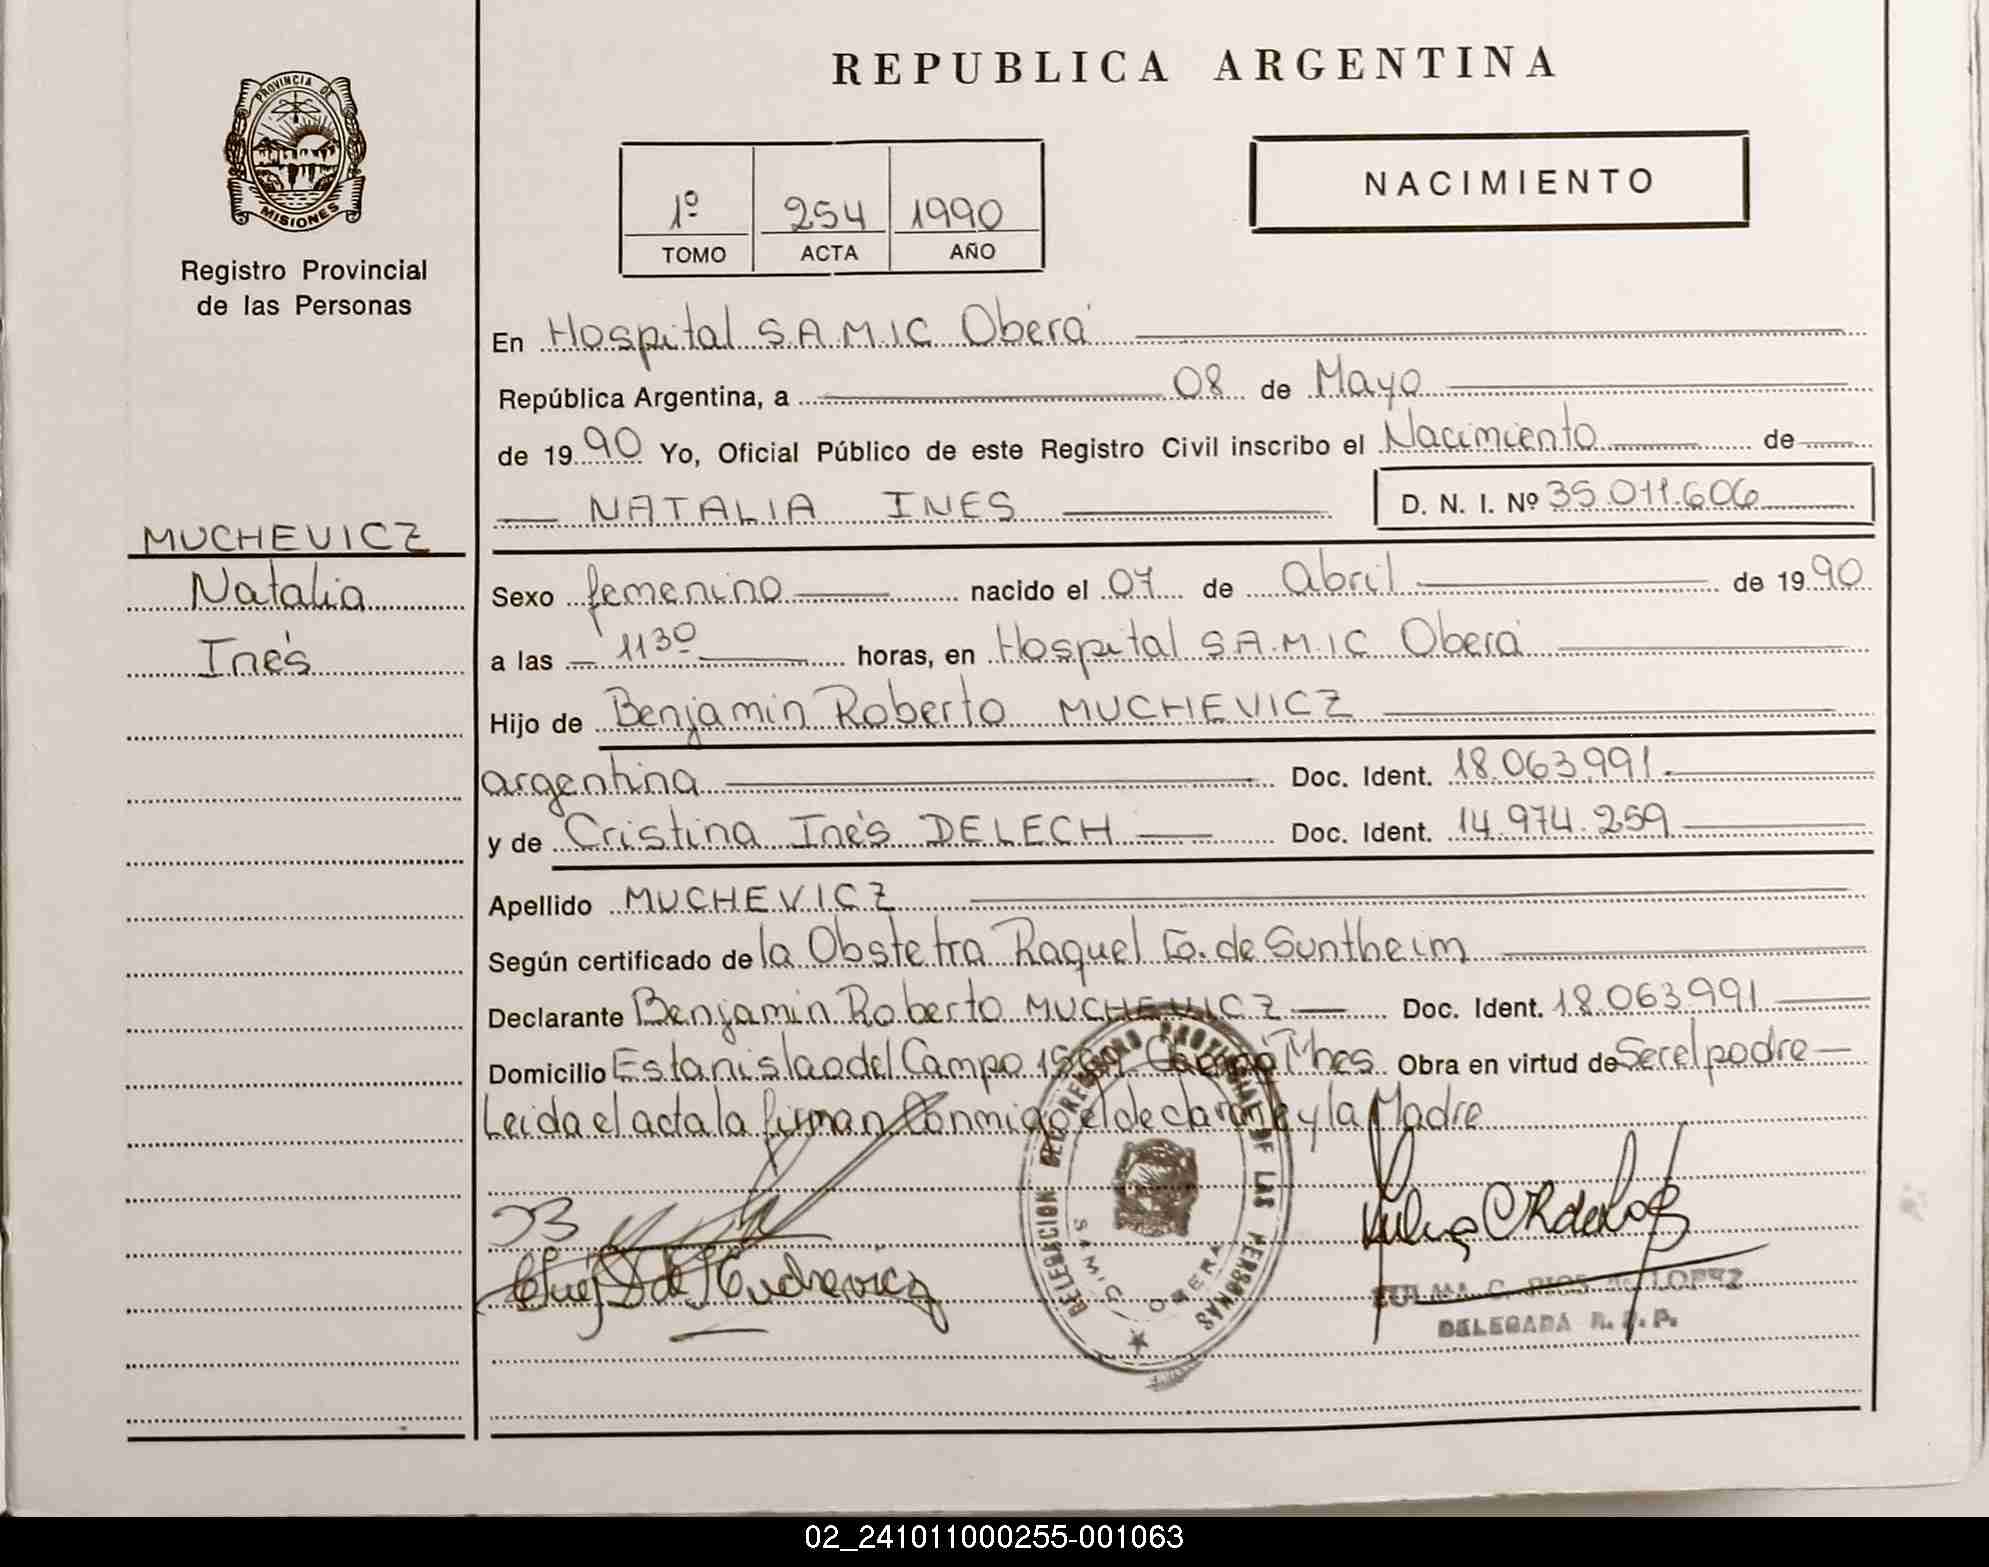 REPUBLICA ARGENTINA
PROVINCIA DE
MISIONES
Registro Provincial
de las Personas
NACIMIENTO
1º 254 1990
TOMO ACTA AÑO
En Hospital S.A.M.I.C Oberá
República Argentina, a 08 de Mayo
de 1990 Yo, Oficial Público de este Registro Civil inscribo el Nacimiento de
NATALIA INES D. N. I. Nº 35.011.606
MUCHEVICZ
Natalia
Inés
Sexo femenino nacido el 07 de Abril de 1990
a las 11 30 horas, en Hospital S.A.M.I.C Oberá
Hijo de Benjamin Roberto MUCHEVICZ
argentina Doc. Ident. 18.063.991.
y de Cristina Inés DELECH Doc. Ident. 14.974.259
Apellido MUCHEVICZ
Según certificado de la Obstetra Raquel G. de Suntheim
Declarante Benjamin Roberto MUCHEVICZ Doc. Ident. 18.063.991
Domicilio Estanislao del Campo Mnes. Obra en virtud de Ser el padre
Leida el acta la firman Conmigo el declarante y la Madre
DELEGACION DEL REGISTRO PROVINCIAL DE LAS PERSONAS
SAMIC OBERA
ZULMA C. RIOS de LOPEZ
DELEGADA R. P. P.
02_241011000255-001063